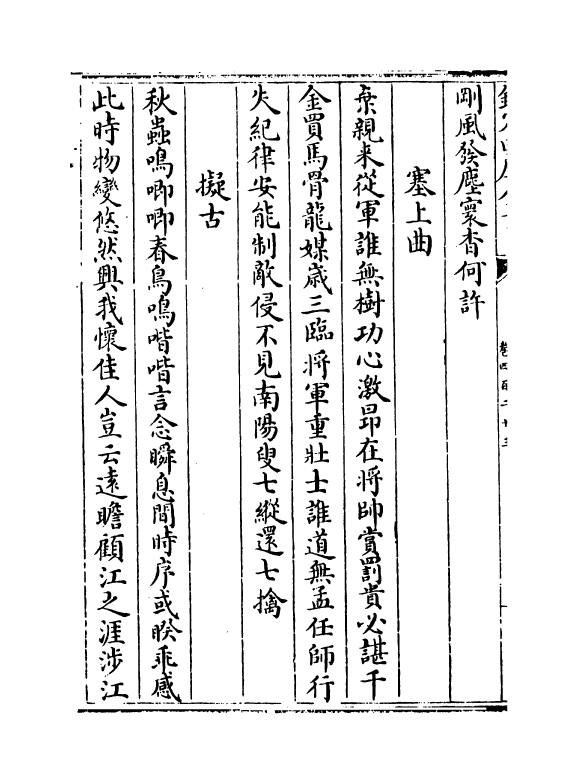 剛風發塵寰杳何許
塞上曲
棄親来從軍誰無樹功心激昻在將帥賞罰貴必諶千
金買馬骨龍媒歳三臨將軍重壯士誰道無孟任師行
失紀律安能制敵侵不見南陽叟七縱還七擒
擬古
秋蟲鳴唧唧春鳥鳴喈喈言念瞬息間時序或暌乖感
此時物變悠然興我懷佳人豈云遠瞻顧江之涯涉江